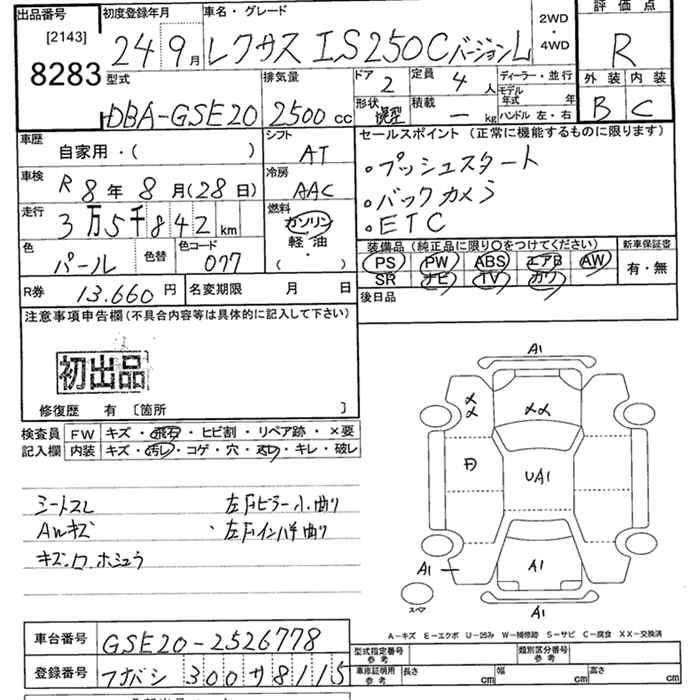 出品番号 初度登録年月 車名・グレード 2WD・4WD 評価点
[2143] 8283 24 9月 レクサス IS250C バージョンL R
型式 排気量 ドア 2 定員 4人 ディーラー・並行 外装 内装
DBA-GSE20 2500cc 形状 積載 ー kg モデル年式 年 B C
ハンドル 左・右
車歴 シフト セールスポイント (正常に機能するものに限ります)
自家用・( ) AT ・プッシュスタート
車検 R8年8月(28日) 冷房 AAC ・バックカメラ
走行 3万5千842km 燃料 ガソリン ・ETC
軽・油
( ・ )
色 パール 色替 色コード 077 装備品(純正品に限り○をつけてください) 新車保証書
PS PW ABS エアB AW 有・無
SR ナビ TV カワ
R券 13.660円 名変期限 月 日 後日品
注意事項申告欄(不具合内容等は具体的に記入して下さい)
初出品
修復歴 有 〔箇所 〕
検査員 FW キズ・飛石・ヒビ割・リペア跡・×要
記入欄 内装 キズ・汚れ・コゲ・穴・・キレ・破レ
シートスレ 左Fピラー小曲り
AWキズ ・左Fインパネ曲り
キズ、ホシュウ
A1
XX
XX
UA1
A1
A1
A1
スペア
A−キズ E−エクボ U−凹み W−補修跡 S−サビ C−腐食 XX−交換済
車台番号 GSE20-2526778 型式指定番号 参考 類別区分番号 参考
登録番号 300 サ 8115 車庫証明用 参考 長さ cm 幅 cm 高さ cm